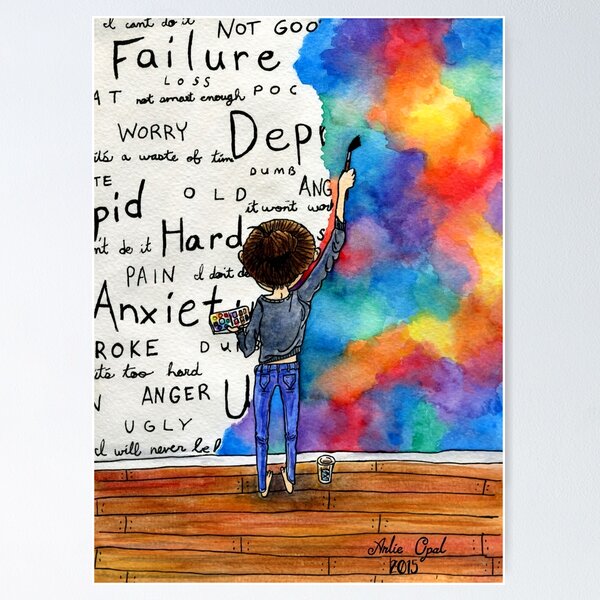 I can't do it NOT GOO
Failure
LOSS
AT not smart enough POC
WORRY Dep
it's a waste of tim
DUMB
TE
pid OLD ANG
it wont wor
n't do it Hard s
PAIN I don't de
Anxiet
ROKE DU
it's too hard
N ANGER U
UGLY
I will never be
Arlie Opal
2015